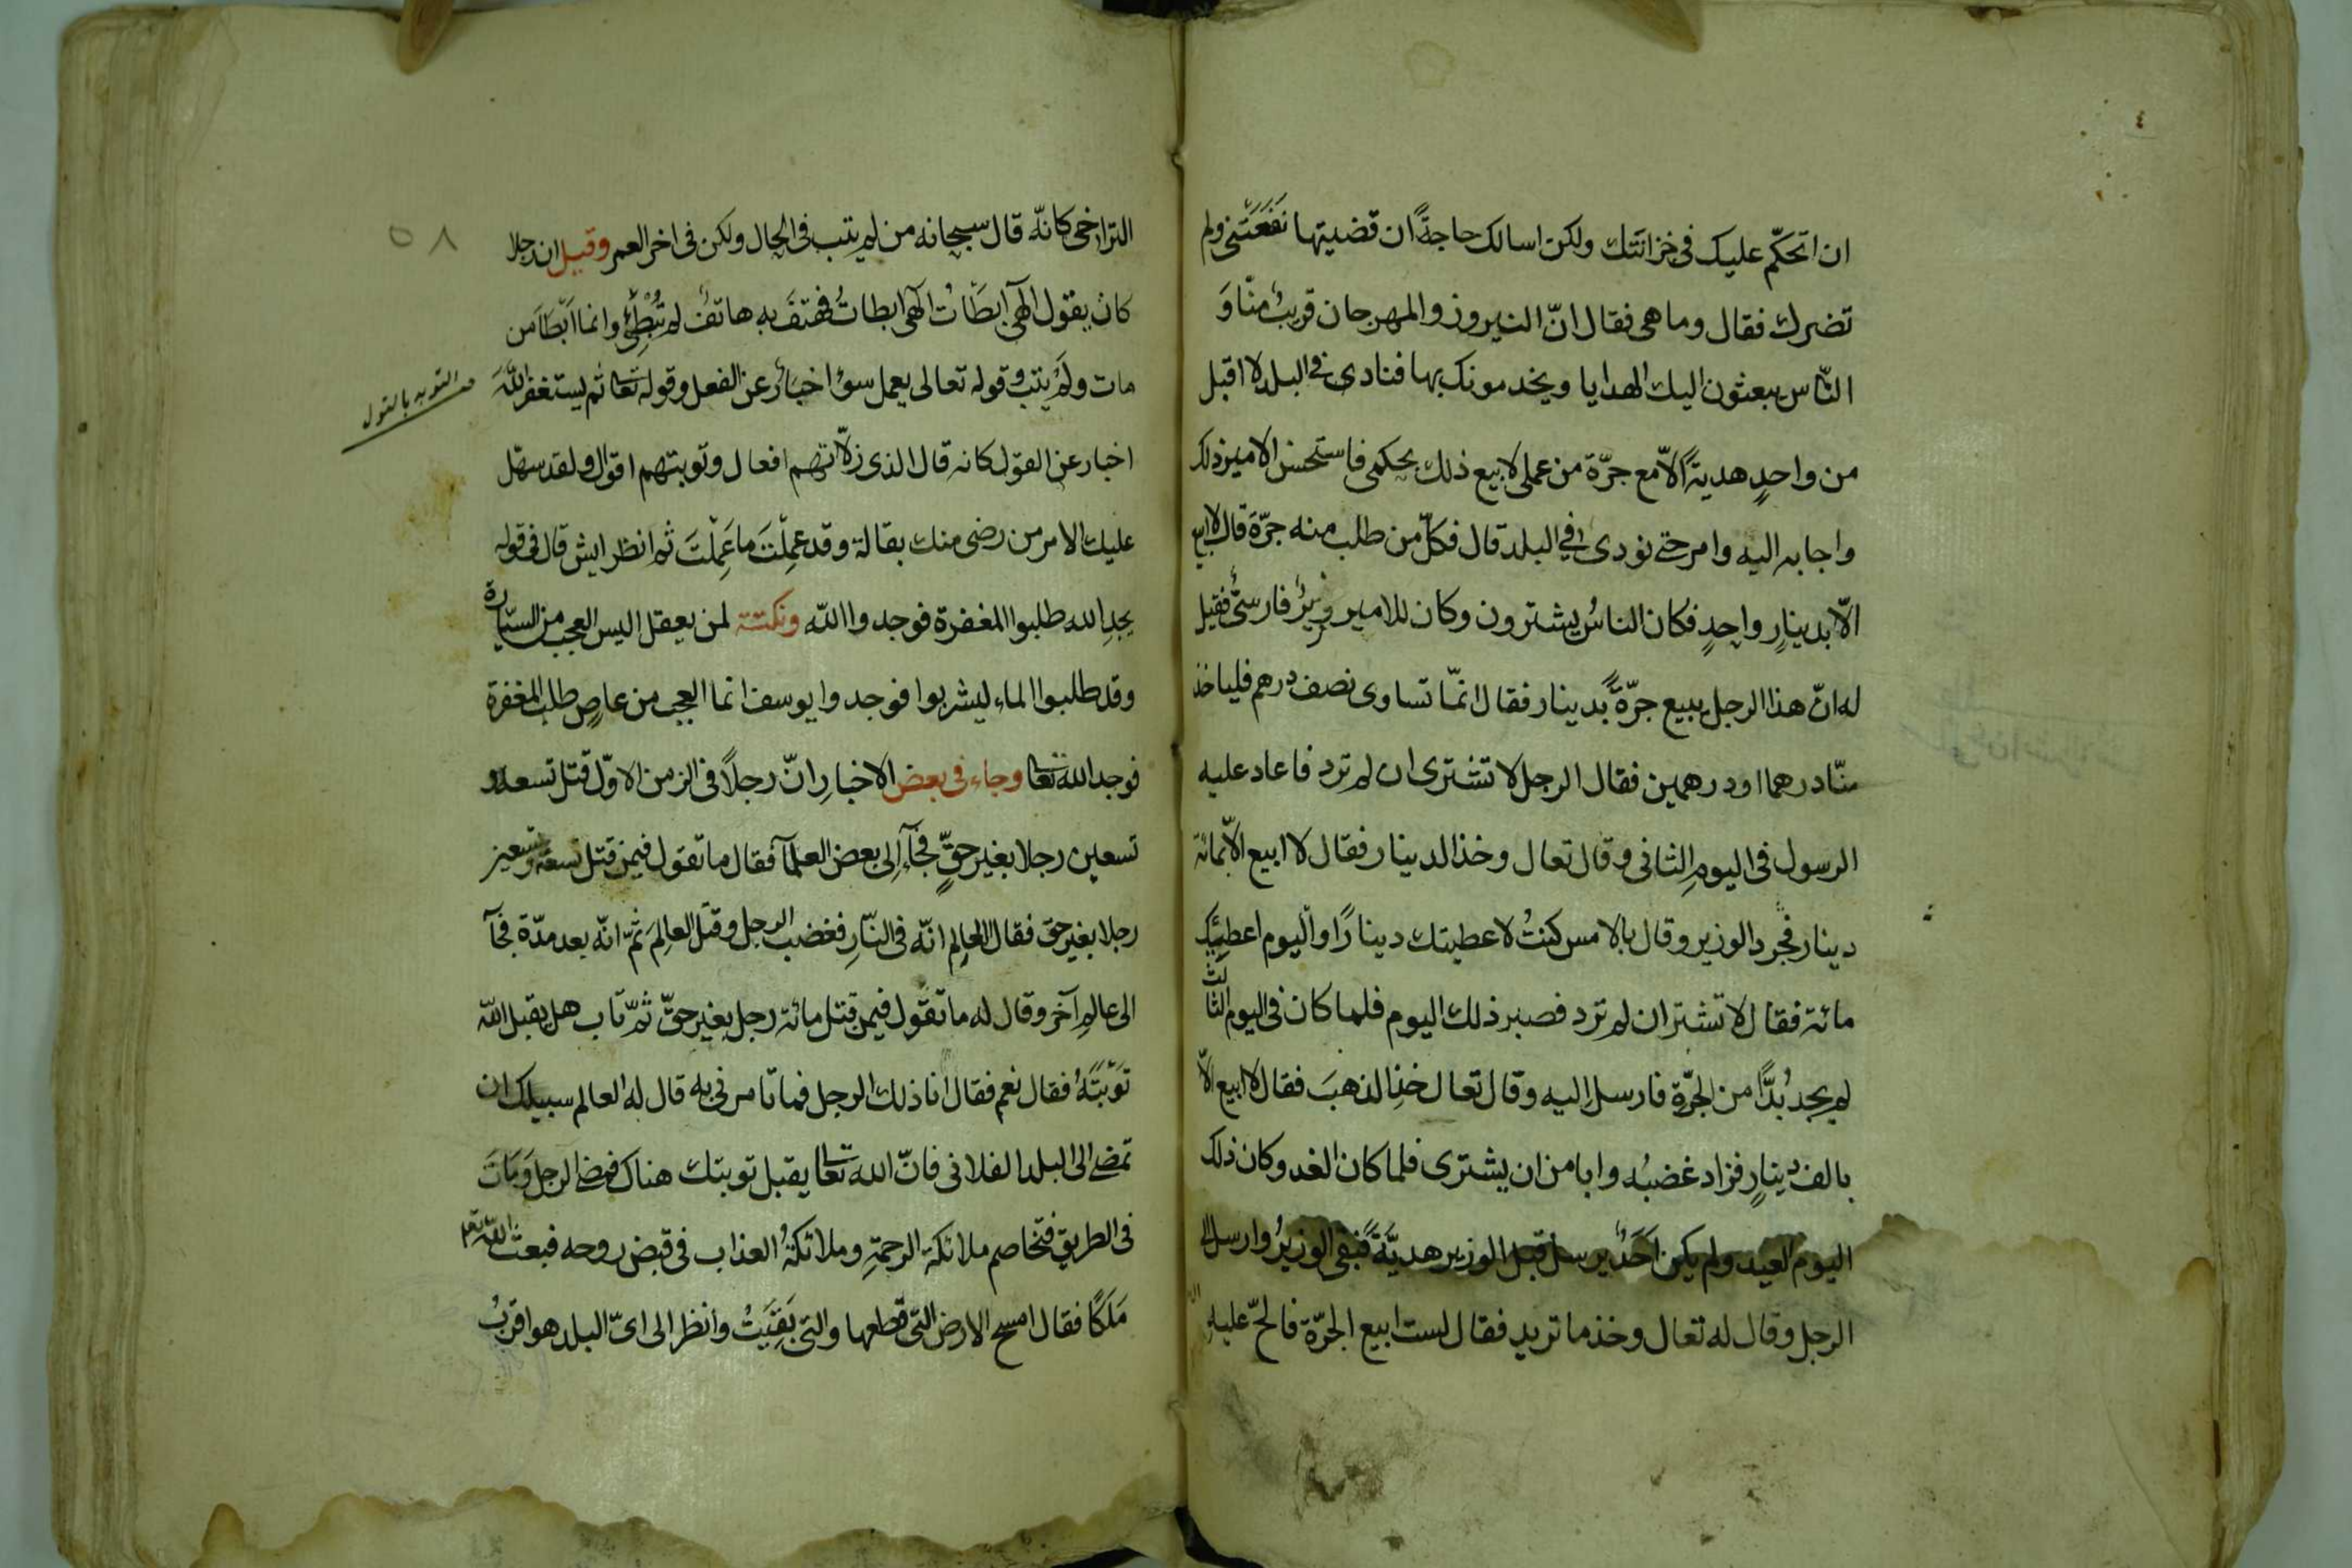 ان اتحكّم عليك في خزانتك ولكن اسالك حاجةً ان قضيتها نَفَعَتْنى ولم
تضرك فقال وما هى فقال انّ النيروز والمهرجان قريبٌ منّا وَ
النّاس يبعثون اليك الهدايا ويخدمونك بها فنادى فى البلد لا اقبل
من واحدٍ هديةً الّا مع جرّة من عملى لابيع ذلك بحكمى فاستحسن الامير ذلك
واجابه اليه وامر حتى نودى فى البلد قال فكلّ من طلب منه جرّة قال لا ابيع
الّا بدينارٍ واحدٍ فكان الناسُ يشترون وكان للامير وزيرٌ فارسىٌّ فقيل
له انّ هذا الرجل يبيع جرّةً بدينار فقال انمّا تساوى نصف درهم فلياخذ
منّا درهما او درهمين فقال الرجل لا تشترى ان لم ترد فاعاد عليه
الرسول فى اليومِ الثانى وقال تعال وخذ الدينار فقال لا ابيع الّا بمائة
دينار فجرد الوزير وقال بالامس كنتُ لاعطيتك دينارًا واليوم اعطيك
مائة فقال لا تشتر ان لم ترد فصبر ذلك اليوم فلما كان فى اليوم الثالث
لم يجد بُدًّا من الجرّة فارسل اليه وقال تعال خذِ الذهبَ فقال لا ابيع الّا
بالف دينارٍ فزاد غضبُه وابا من ان يشترى فلما كان الغد وكان ذلك
اليوم العيد ولم يكن احَدٌ يرسل قبل الوزير هديّةً فبقى الوزيرُ وارسل الى
الرجل وقال له تعال وخذ ما تريد فقال لست ابيع الجرّة فالحّ عليهِ
٥٨
التراخى كانّه قال سبحانه من لم يتب فى الحال ولكن فى اخر العمر وقيل ان رجلا
كان يقول الهى ابطَأت الهى ابطات فهتفَ به هاتفٌ لم تُبْطِئْ وانما ابَطَاَ من
مات ولم يتب وقوله تعالى يعمل سوءًا اخبارٌ عن الفعل وقوله تعالى ثم يستغفر اللّهَ
اخبار عن القول كانه قال الذى زلّاتهم افعال وتوبتهم اقوال ولقد سهّل
عليك الامر من رضى منك بقالة وقد عمِلتَ ما عَمِلْتَ ثم انظر ايش قال فى قوله
يجدِ الله طلبوا المغفرة فوجدوا اللّه ونكتة لمن يعقل اليس العجب من السيّارة
وقد طلبوا الماء ليشربوا فوجدوا يوسف انما العجب من عاصٍ طلب المغفرة
فوجد الله تعالى وجاء فى بعض الاخبارِ انّ رجلًا فى الزمن الاوّل قتل تسعة و
تسعين رجلا بغير حقٍّ فجآء اِلى بعض العلمآ فقال ما تقول فيمن قتل تسعة وتسعين
رجلا بغير حق فقال العالِم انّه فى النّارِ فغضب الرجل وقتَل العالِمَ ثمّ انّه بعد مدّة فجآ
الى عالمٍ آخر وقال له ما تقول فيمن قتل مائة رجل بغير حقّ ثمّ تاب هل يقبل اللّه
توْبَتَهُ فقال نعم فقال انا ذلك الرجل فما تامرنى به قال له العالم سبيلك ان
تمضى الى البلد الفلانى فانّ الله تعالى يقبل توبتك هناك فمضى الرجل وَمَاتَ
فى الطريق فتخاصم ملائكة الرحمةِ وملائكةُ العذاب فى قبض روحه فبعث اللّه تعالى
مَلَكًا فقال امسح الارض التى قطعها والتى بَقِيَتْ وانظر الى اىّ البلد هو اقربُ
التوبه بالقول